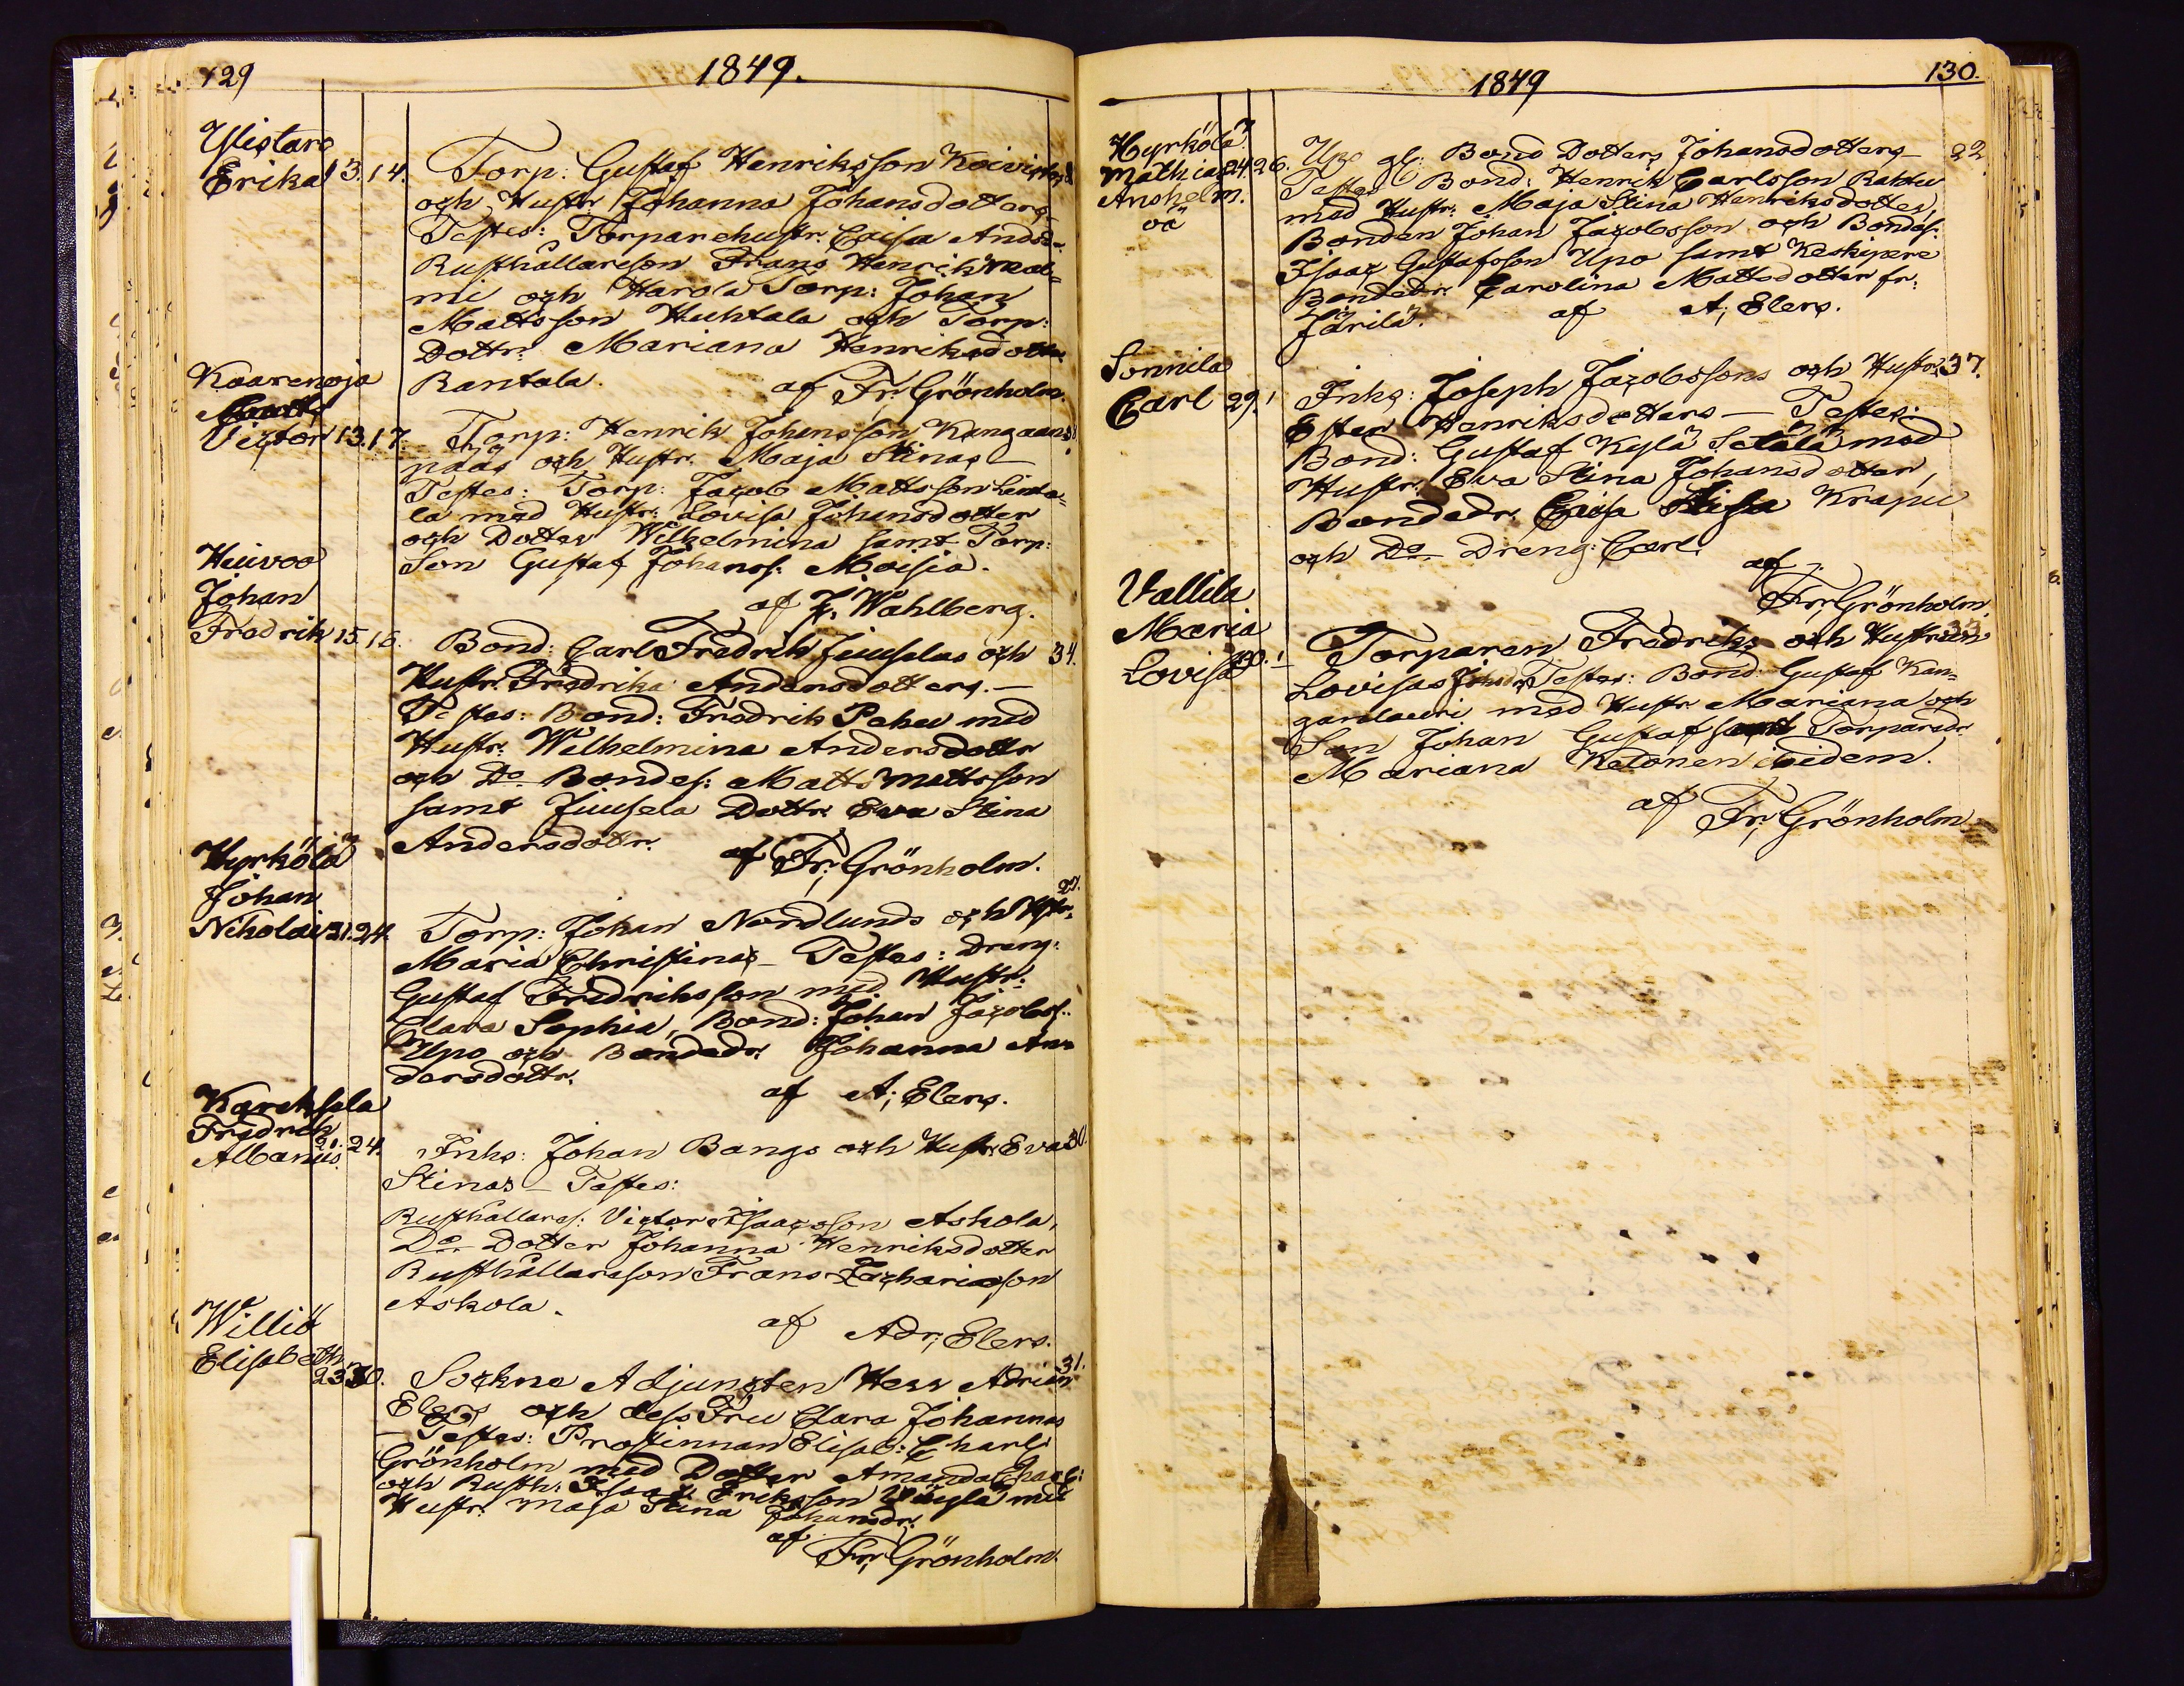 129
1849.
Ylistaro
Erika 13. 14. Torp: Gustaf Henriksson Koivisto
och Hustr Johanna Johansdotters
Testes: Torparehustr. Caisa Andsd.
Rusthållareson Frans Henrik
mi och Harola Torp: Johan
Mattsson Huhtala och Torp:
Dottr. Mariana Henriksdotter
Rantala. af Fr. Grönholm.
Kaarenoja
Victor 13. 17. Torp: Henrik Johansson Kangaan
pääs och Hustr. Maja Stinas –
Testes: Torp: Jacob Mattsson
la med Hustr. Lovisa Johansdotter
och Dotter Wilhelmina samt Torp:
Son Gustaf Johanss. Moisio.
af F. Wahlberg.
Heivoo
Johan
Fredrik 15. 16. Bond: Carl Fredrik Juuselas och 34.
Hustr. Fredrika Andersdotters. –
Testes: Bond: Fredrik Pahu med
Hustr. Wilhelmina Andersdottr
och Do Bondes: Matts Mattsson
samt Juusela Dottr. Eva Stina
Andersdottr. af Fr; Grönholm.
Hyrkölä
Johan
Nikolai 21. 24. Torp: Johan Nordlunds och Hustr. 27.
Maria Christinas – Testes: Dreng:
Gustaf Fredriksson med Hustr.
Clara Sophia, Bond: Johan Jacobss.
Upo och Bondedr. Johanna An-
dersdottr. af A; Elers.
Kareksela
Fredrik
Albanus. 21. 24. Inhs: Johan Bangs och Hustr. Eva 30.
Stinas – Testes:
Rusthållares: Victor Isaacsson Askola,
Do Dotter Johanna Henriksdotter
Rusthållareson Frans Zachariasson
Askola.
af Adr; Elers.
Williö
Elisabeth
23. 30. Sockne Adjuncten Herr Adrian 31.
Elers och dess Fru Clara Johannas
– Testes: Prostinnan Elisab: Charl:
Grönholm med Dotter Amanda Charl:
och Rusth: Isaac Eriksson med
Hustr. Maja Stina Johansdr.
af
Fr; Grönholm.
1849
130.
Hyrkölä
Mathias 24. 26. Upo gl: Bond Dotters Johansdotters – 22
Anshelm. Testes Bond: Henrik Carlsson Rahtu
oä med Hustr. Maja Stina Henriksdotter,
Bonden Johan Jacobsson och Bondes:
Isaac Gustafsson Upo samt Keskipere
Bondedr. Carolina Mattsdotter fr:
Järilä. af A; Elers.
Sonnila
Carl 29. 1 Inhs: Joseph Jacobssons och Hustr. 37.
Ester Henriksdotters – Testes:
Bond: Gustaf Kylä Setälä med
Hustr. Eva Stina Johansdotter,
Bondedr. Caisa Krapu
och Do Dreng: Carl.
af
Fr; Grönholm.
Vallila
Maria
Lovisa 30. 1 Torparen Fredriks och Hustrun 33
Lovisas Johsdr. Testes: Bond Gustaf Kan-
ganlauri med Hustr Mariana och
Son Johan Gustaf samt Torparedr.
Mariana Ketonen ibidem.
af Fr; Grönholm